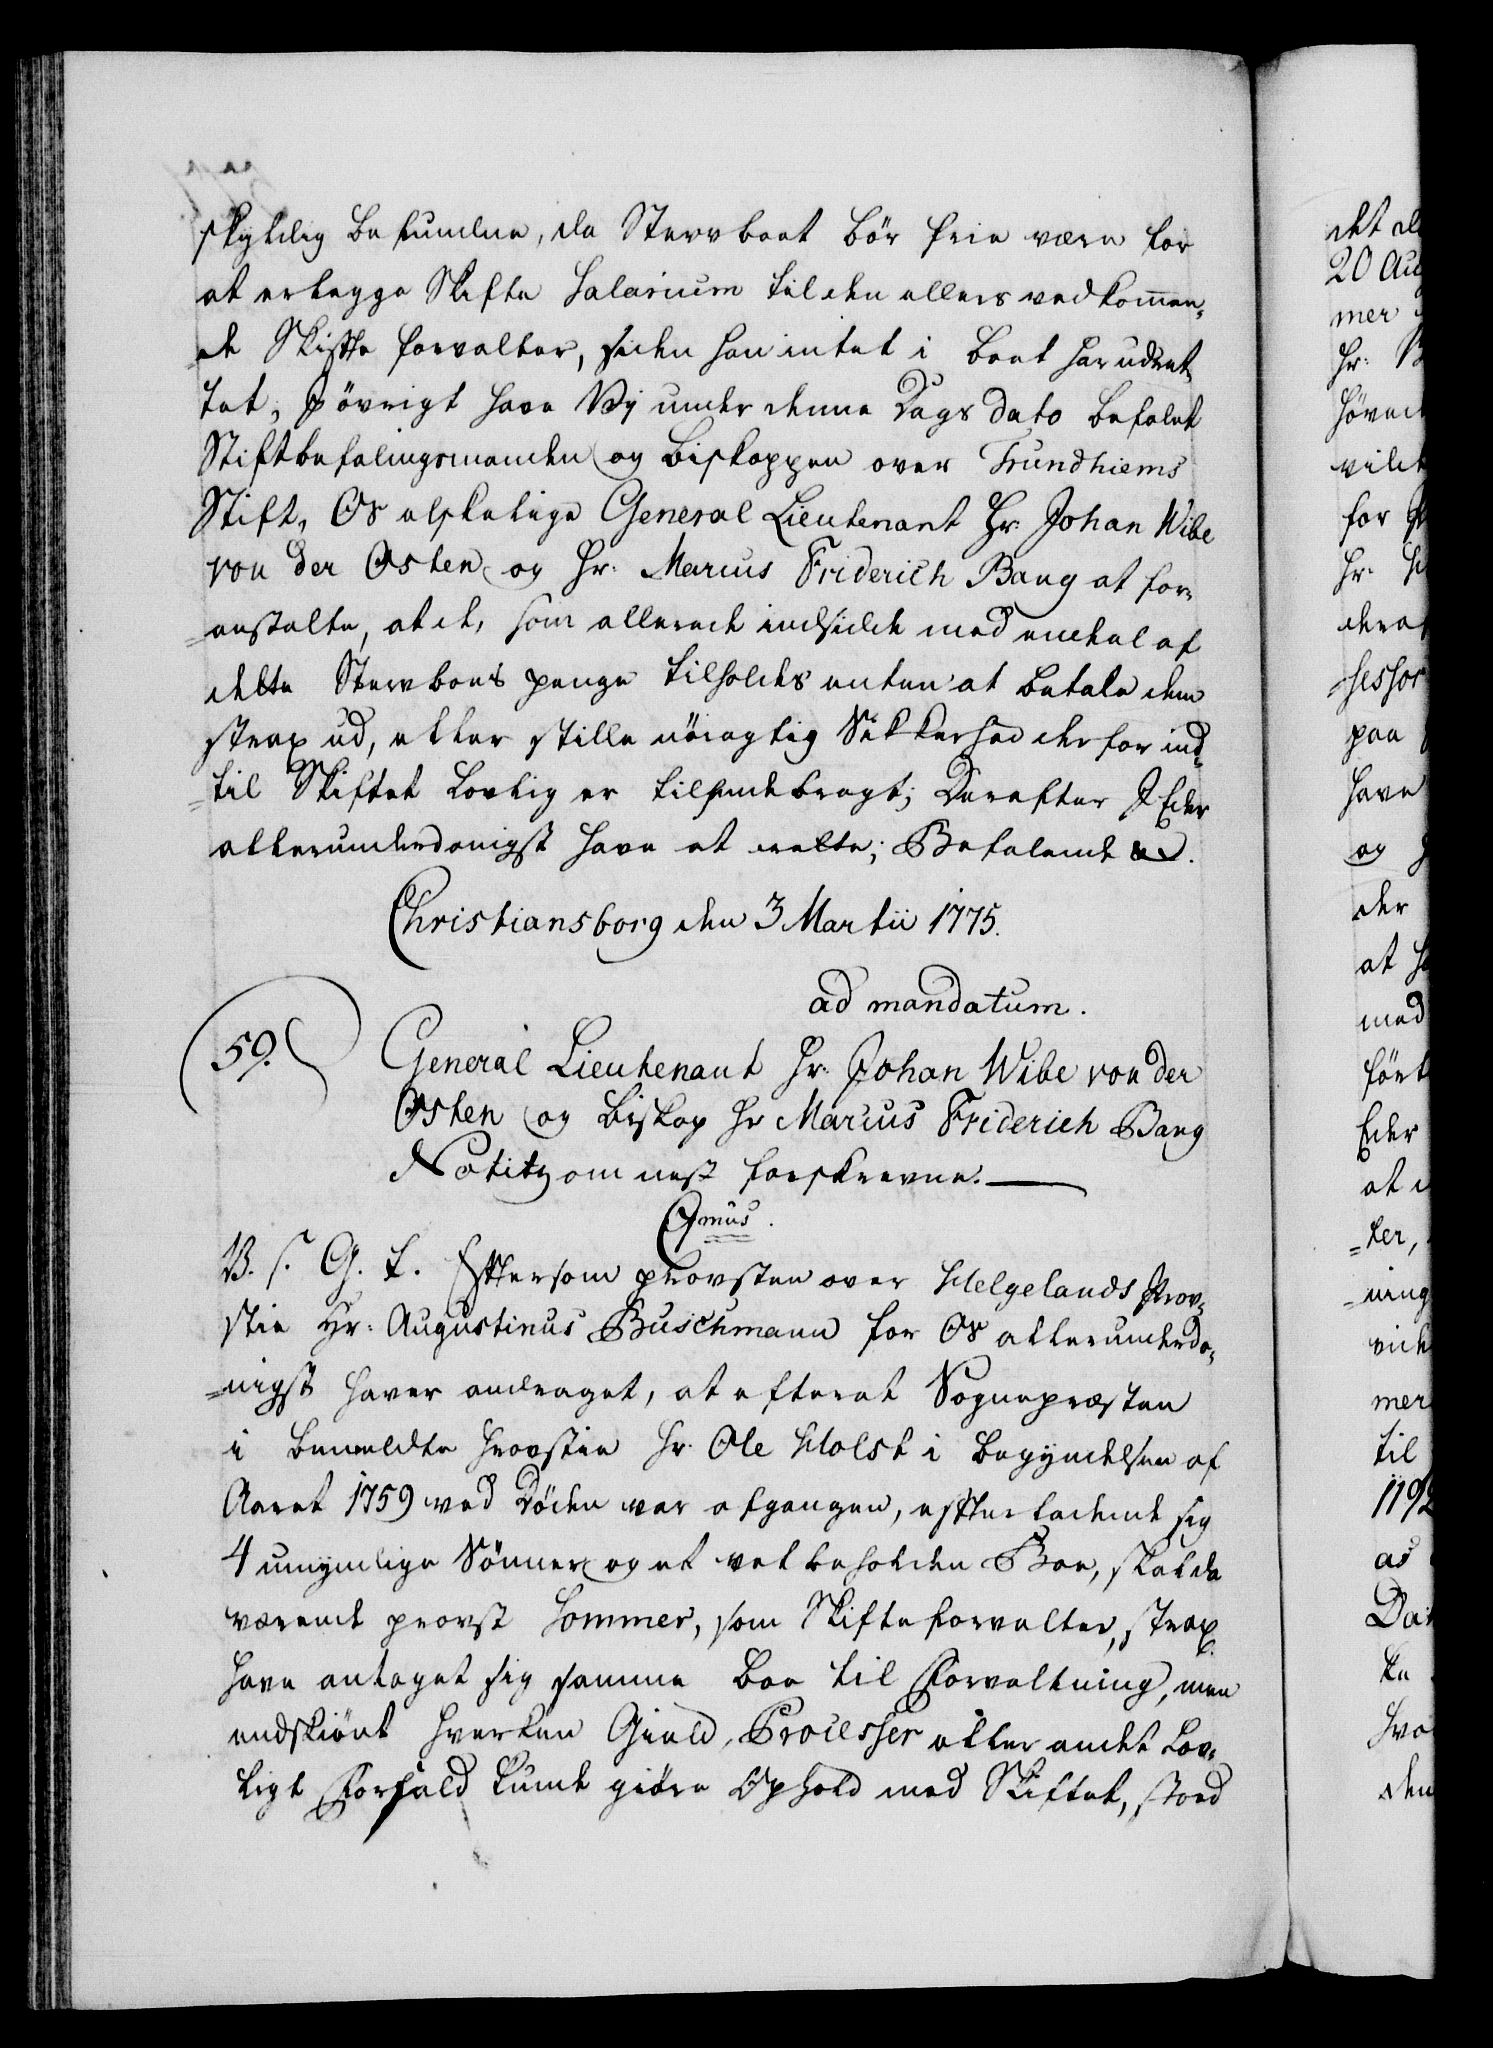 skyldig befunden, da Stervboet bør frie være for
at erlegge Skifte Salarium til den ellers vedkommen-
=de Skifte forvalter, siden han intet i Boet har udret-
tet; J øvrigt have Vy under denne Dags dato befalet
Stiftbefalingsmanden og Biskoppen over Trundhiems
Stift, Os elskelige General Lieutenant Hr. Johan Wibe
von der Osten og Hr. Marcus Friderich Bang at for-
=anstalte, at de, som allerede indsidde med endel af
dette Stervboes penge tilholdes enten at betale dem
strax ud, eller stille nöiagtig Sikkerhed derfor ind-
=til Skiftet lovlig er tilendebragt; Derefter J Eder
allerunderdanigst have at rette; Befalende &c.
Christiansborg den 3 Martii 1775.
ad mandatum.
59. General Lieutenant Hr. Johan Wibe von der
Osten og Biskop Hr Marcus Friderich Bang
Notitz om nest forskrevne.
Cmus.
V. s. G. t. Eftersom provsten over Helgelands Prov-
stie Hr. Augustinus Buschmann for Os allerunderda-
=nigst haver andraget, at efterat Sognepræsten
i bemeldte Provstie Hr. Ole Holst i Begyndelsen af
Aaret 1759 ved Døden var afgangen, efterladende sig
4 umyndige Sönner og et vel beholden Boe, skal da
værende provst Sommer, som Skifteforvalter, strax
have antaget sig samme Boe til Forvaltning, men
endskiönt hverken Gield, Processer eller andet Lov-
ligt Forfald kunde giöre Ophold med Skiftet, stoed